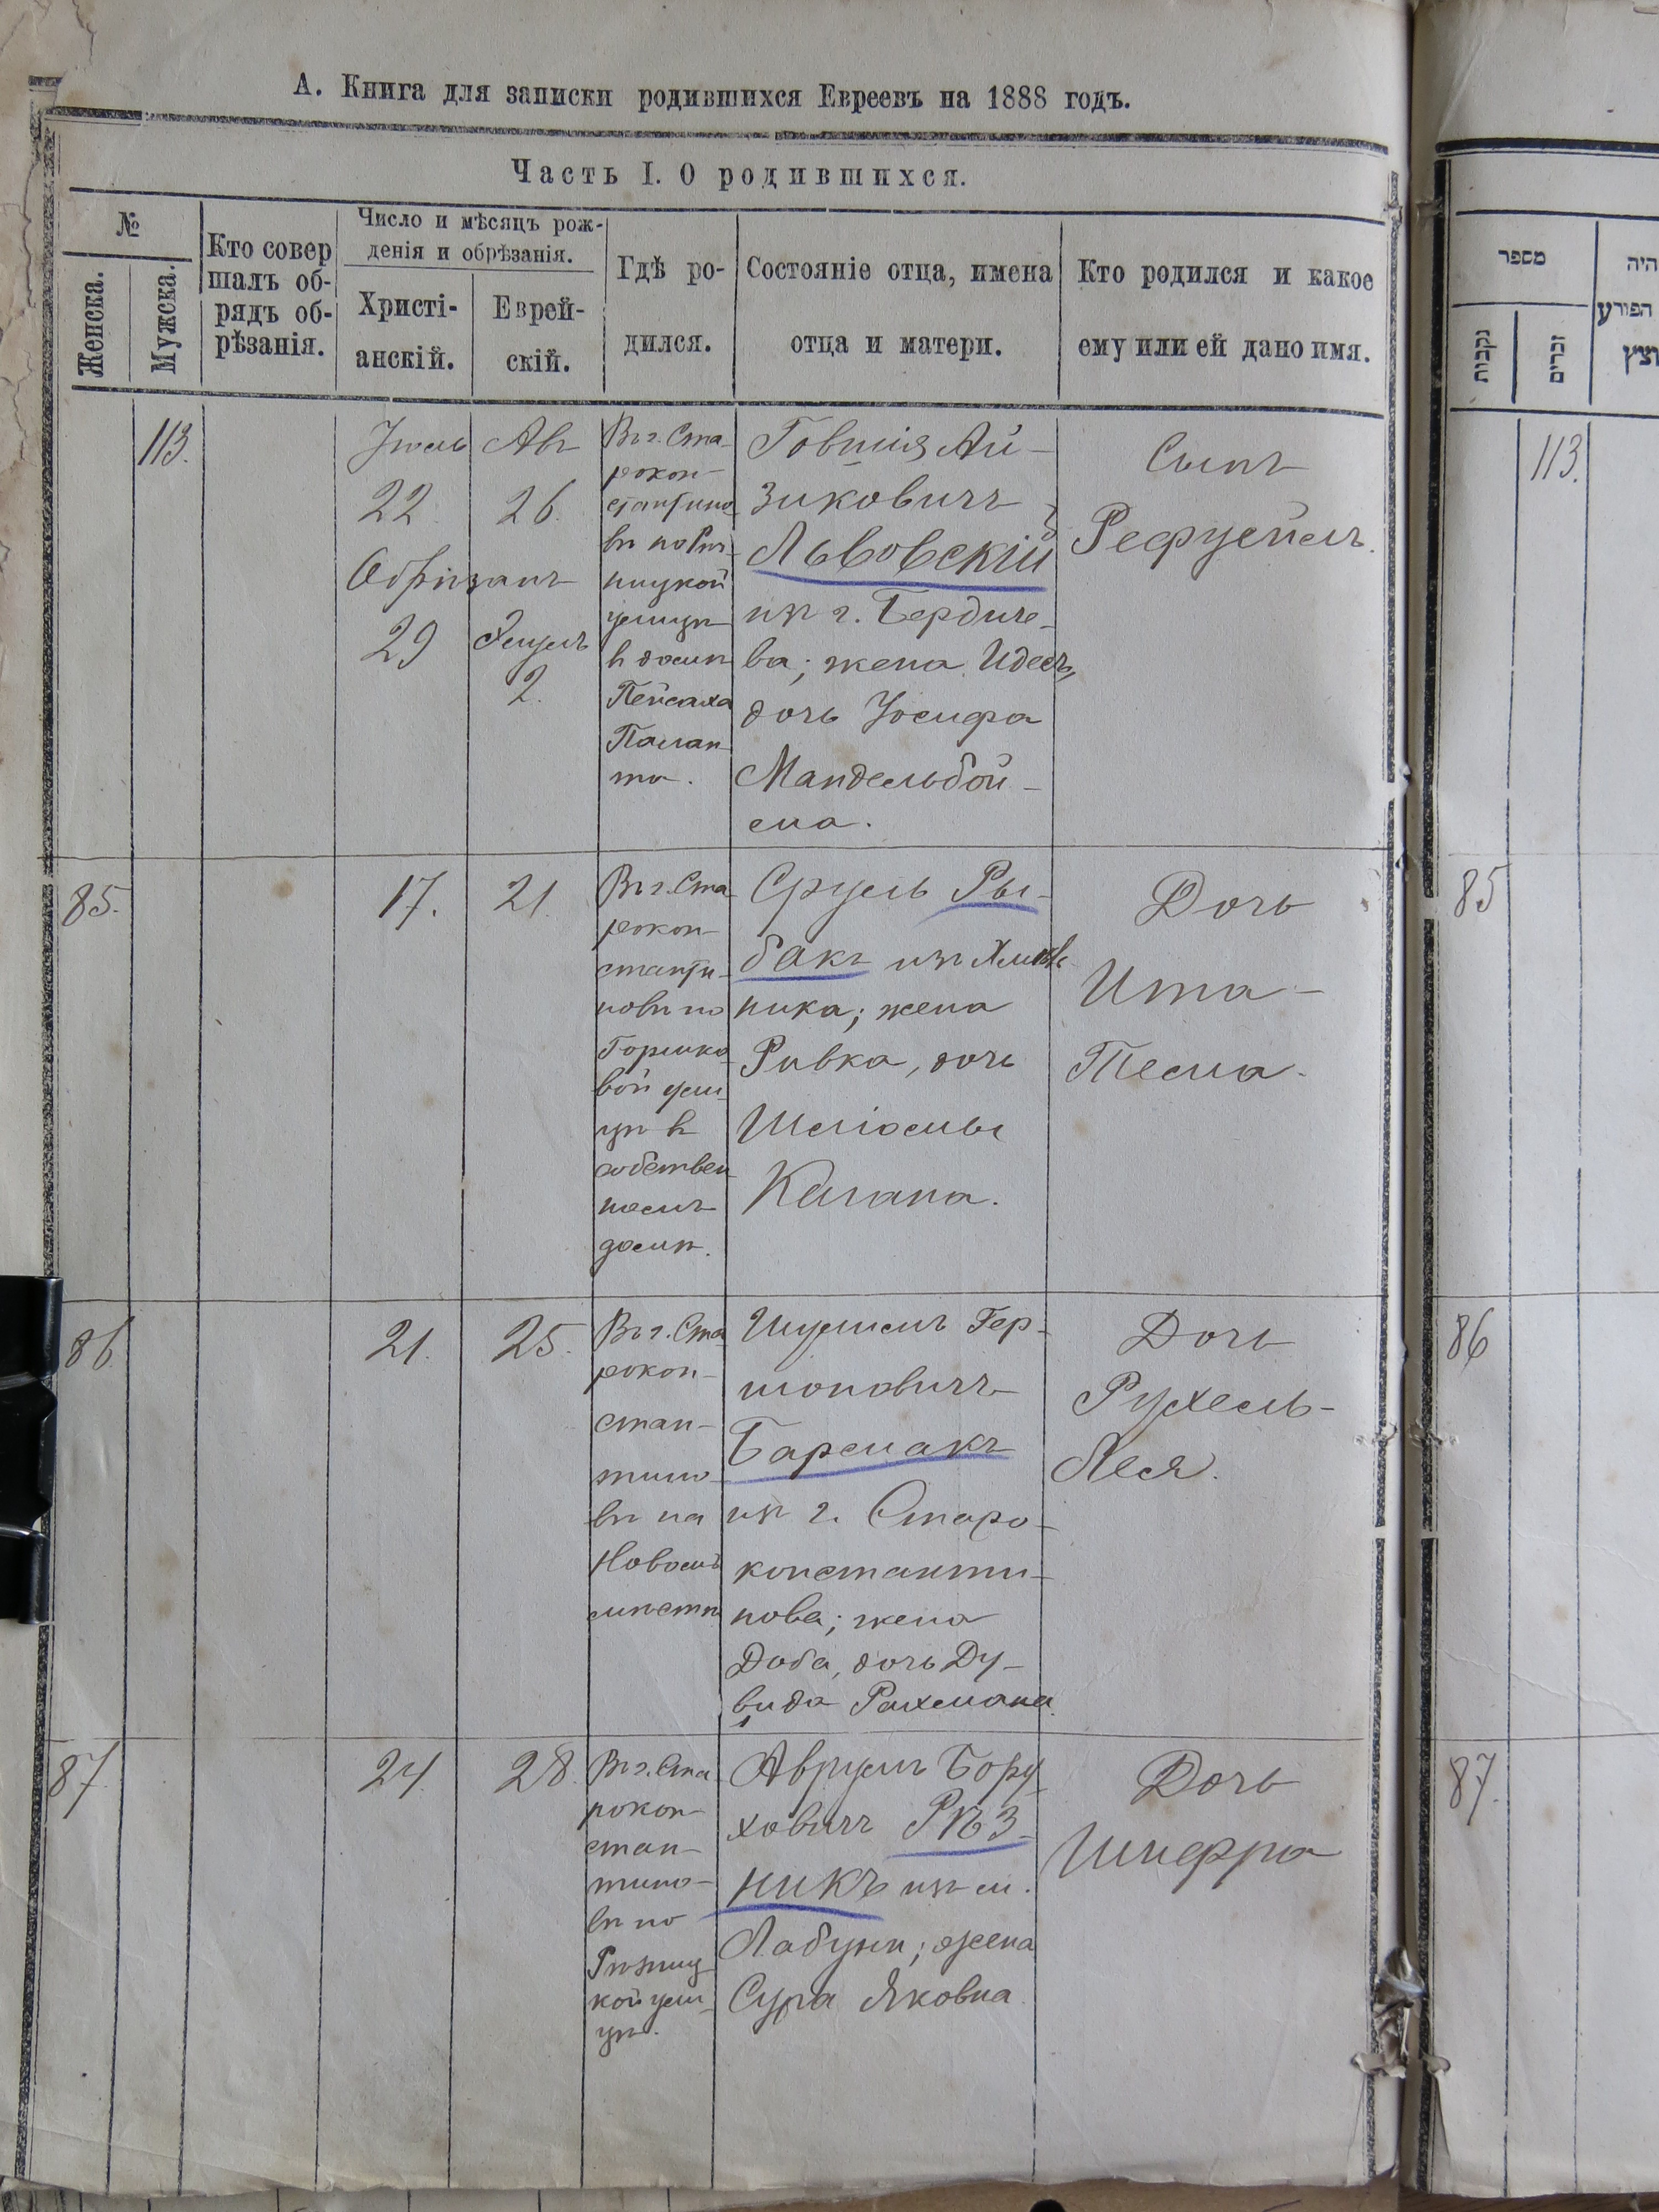 А. Книга для записки родившихся Евреевъ на 1888 годъ.
Часть I. О родившихся.
№
Женска.
Мужска.
Кто совер
шалъ об-
рядъ об-
рѣзанія.
Число и мѣсяцъ рож-
денія и обрѣзанія.
Христі-
анскій.
Еврей-
скій.
Гдѣ ро-
дился.
Состояніе отца, имена
отца и матери.
Кто родился и какое
ему или ей дано имя.
113.
Іюль
22
Обрѣзанъ
29
Ав
26.
Элуль
2.
Въ г. Ста-
рокон-
стантино
вѣ по Рѣз-
ницкой
улицѣ
в домѣ
Пейсаха
Палан-
та.
Товшія Ай-
зиковичъ
Львовскій
изъ г. Бердиче-
ва; жена Идесъ,
дочь Іосифа
Мандельбой-
ма.
Сынъ
Рефуейлъ.
85.
17.
21.
Въ г. Ста
рокон-
станти-
новѣ по
Горшко
вой ули
цѣ в
собствен
номъ
домѣ.
Сруль Ры-
бакъ изъ Хмѣль
ника; жена
Ривка, дочь
Шліомы
Кагана.
Дочь
Ита-
Тема.
86.
21.
25.
Въ г. Ста
рокон-
стан-
тино-
вѣ на
Новомъ
мѣстѣ
Шулимъ Гер-
шоновичъ
Бармакъ
изъ г. Старо-
константи-
нова; жена
Доба, дочь Ду-
вида Рахмана.
Дочь
Рухель-
Лея.
87.
24.
28.
Въ г. Ста
рокон-
стан-
тино-
вѣ по
Рѣзниц
кой ули
цѣ.
Аврумъ Бору
ховичъ РѢЗ-
НИКЪ изъ м.
Лабунь; жена
Сура Яковна
Дочь
Шифра
מספר
נקבות
זכרים
היה
הפורע
113.
85
86
87.